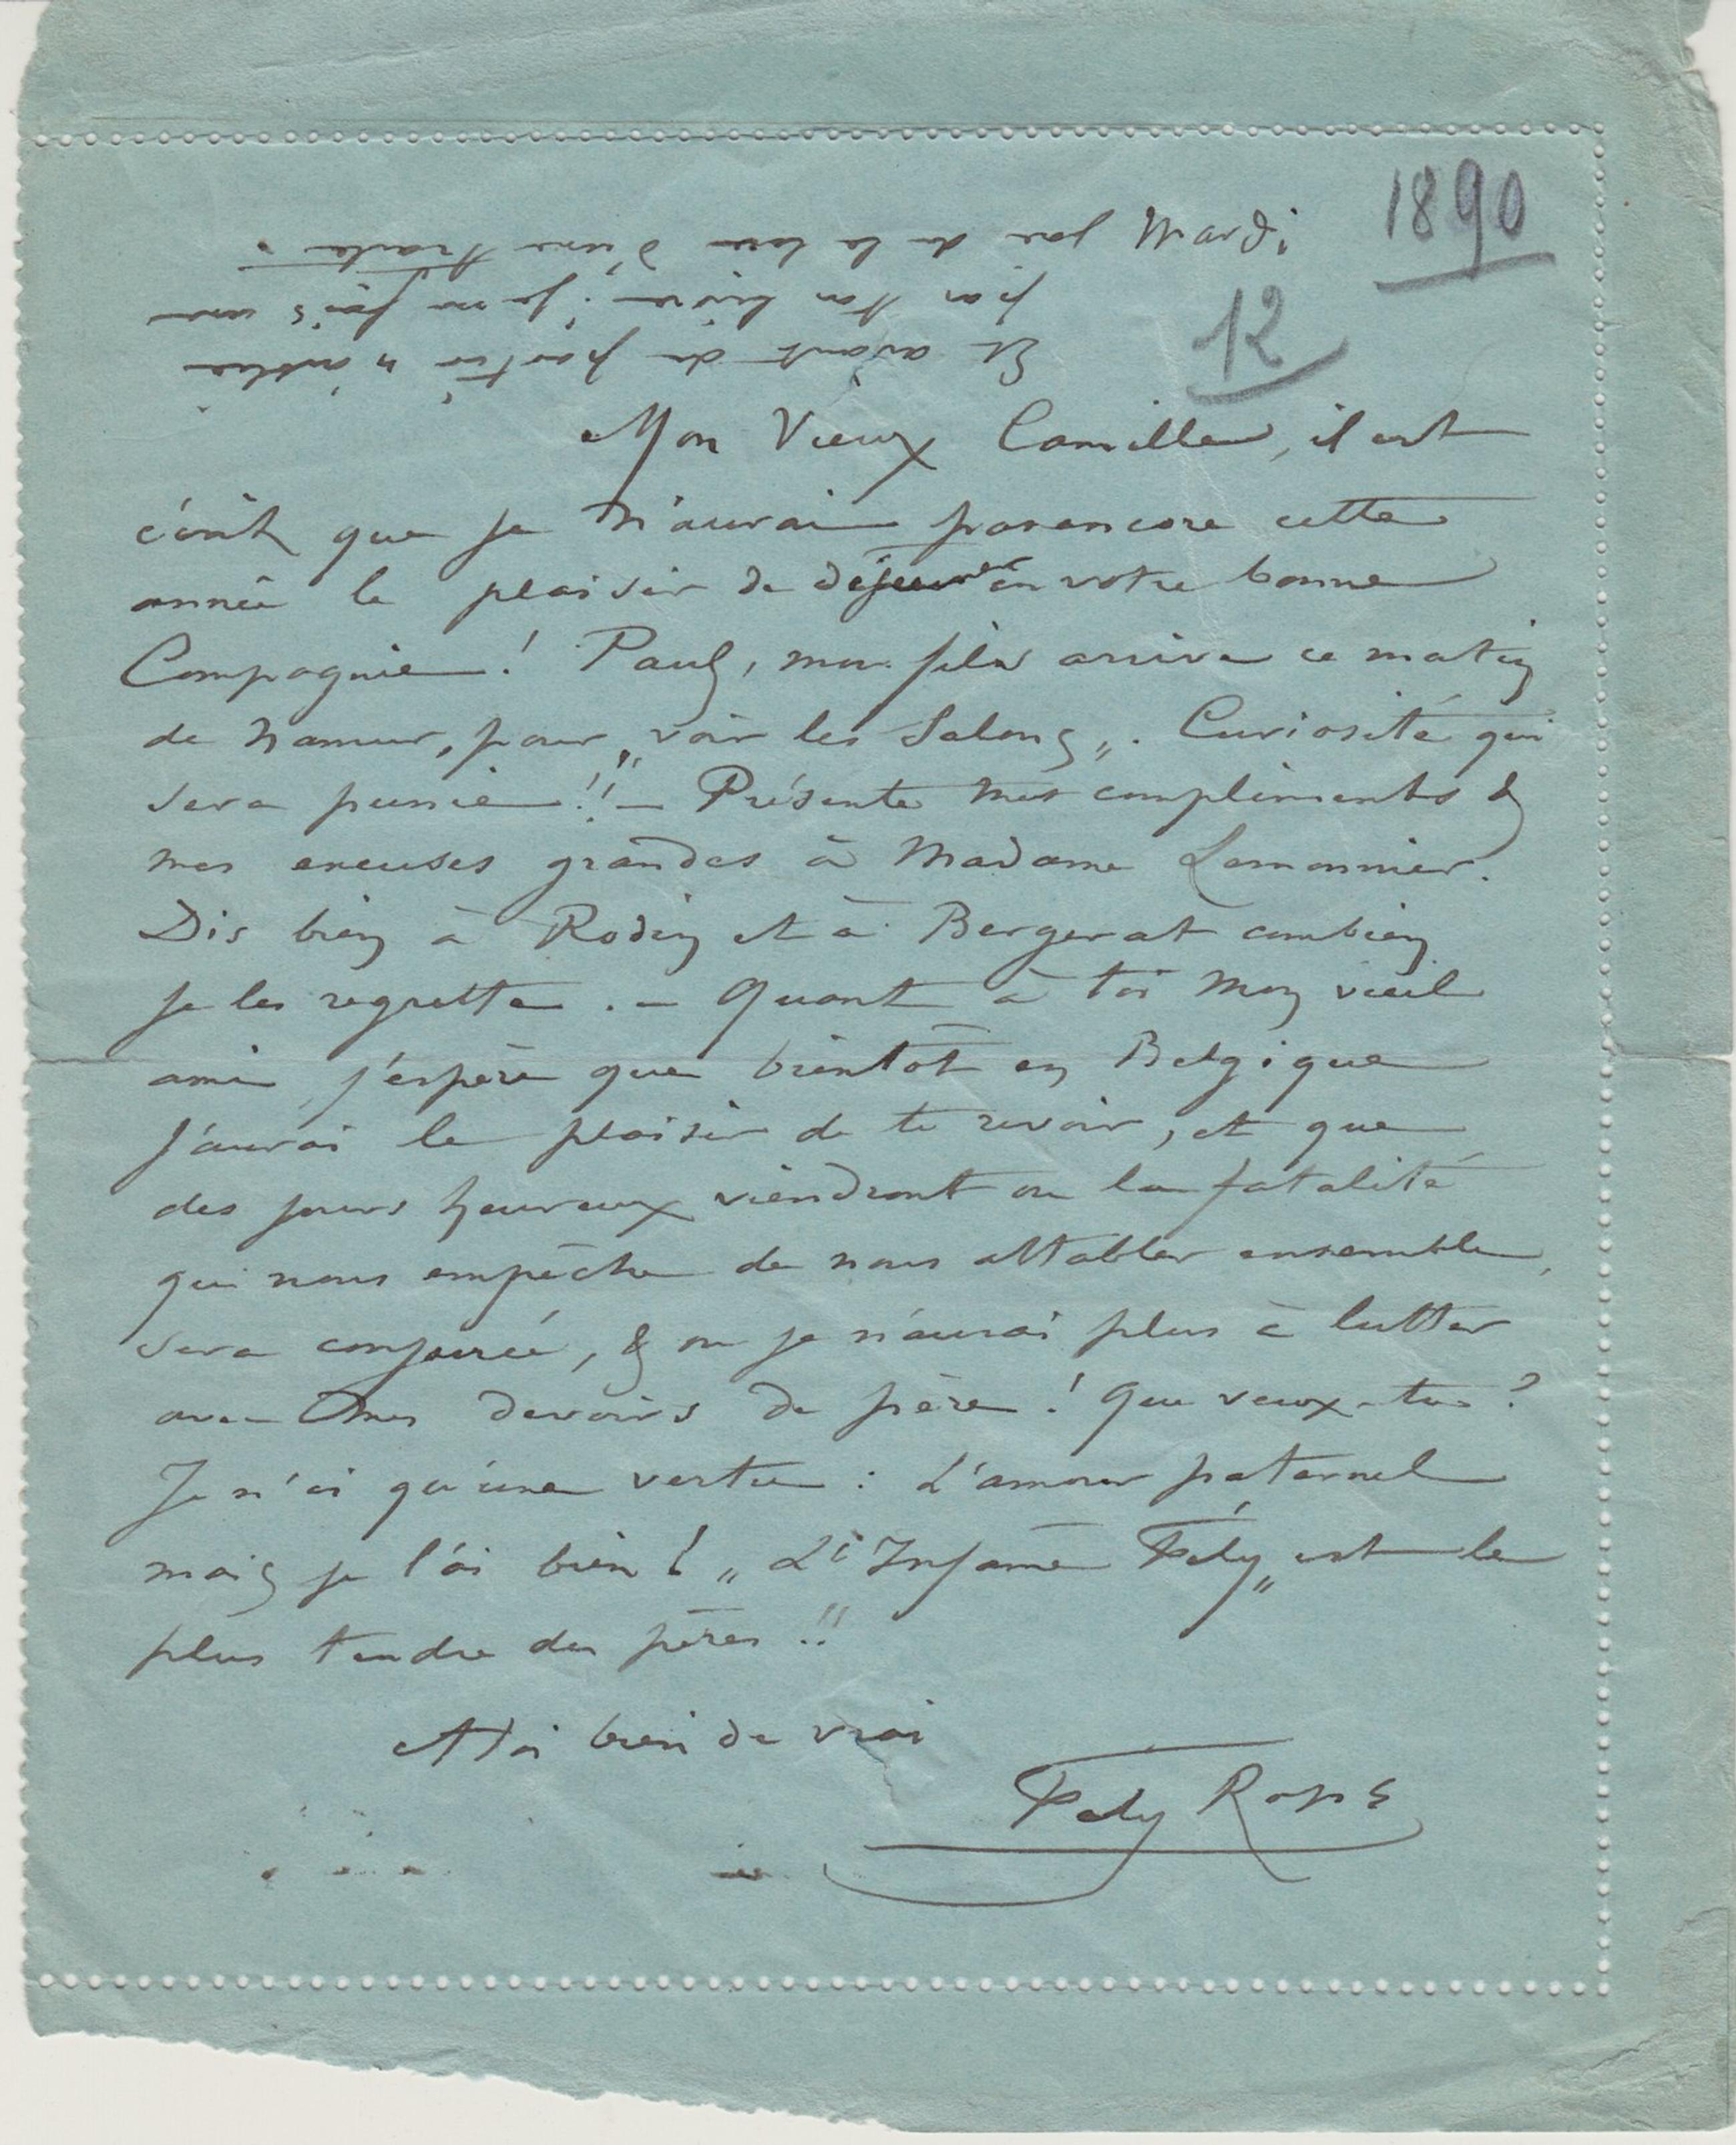 1890
Mardi
12
Mon Vieux Camille, il est
écrit que je n'aurai pas encore cette
année le plaisir de déjeuner en votre bonne
Compagnie ! Paul, mon fils arrive ce matin
de Namur, pour „voir les Salons„. Curiosité qui
sera punie !! – Présente mes compliments &
mes excuses grandes à Madame Lemonnier.
Dis bien à Rodin et à Bergerat combien
je les regrette . – Quant à toi mon vieil
ami j'espère que bientôt en Belgique
j'aurai le plaisir de te revoir, et que
des jours heureux viendront ou la fatalité
qui nous empêche de nous attabler ensemble,
sera conjurée, & ou je n'aurai plus à lutter
avec mes devoirs de père ! Que veux-tu ?
Je n'ai qu'une vertu : L'amour paternel
mais je l'ai bien ! „ L'Infâme Fély„ est le
plus tendre des pères !!
A toi bien de vrai
Fély Rops
Et avant de partir n'oublie
pas ton livre : je me fais une
joie de la lire d'une traite.